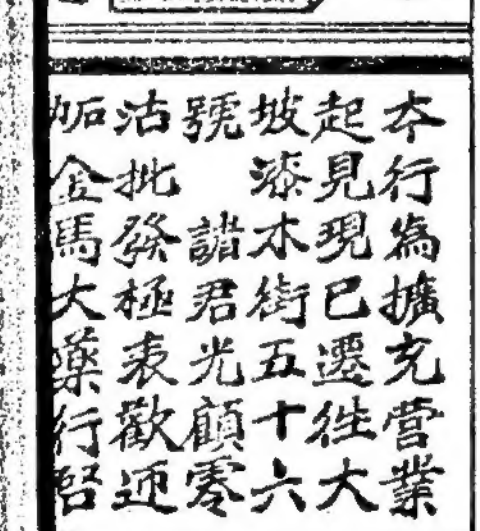 夲行為擴充營業
起見現已遷徃大
坡漆木街五十六
號　諸君光顧零
沽批發極表歡迎
金馬大藥行啓